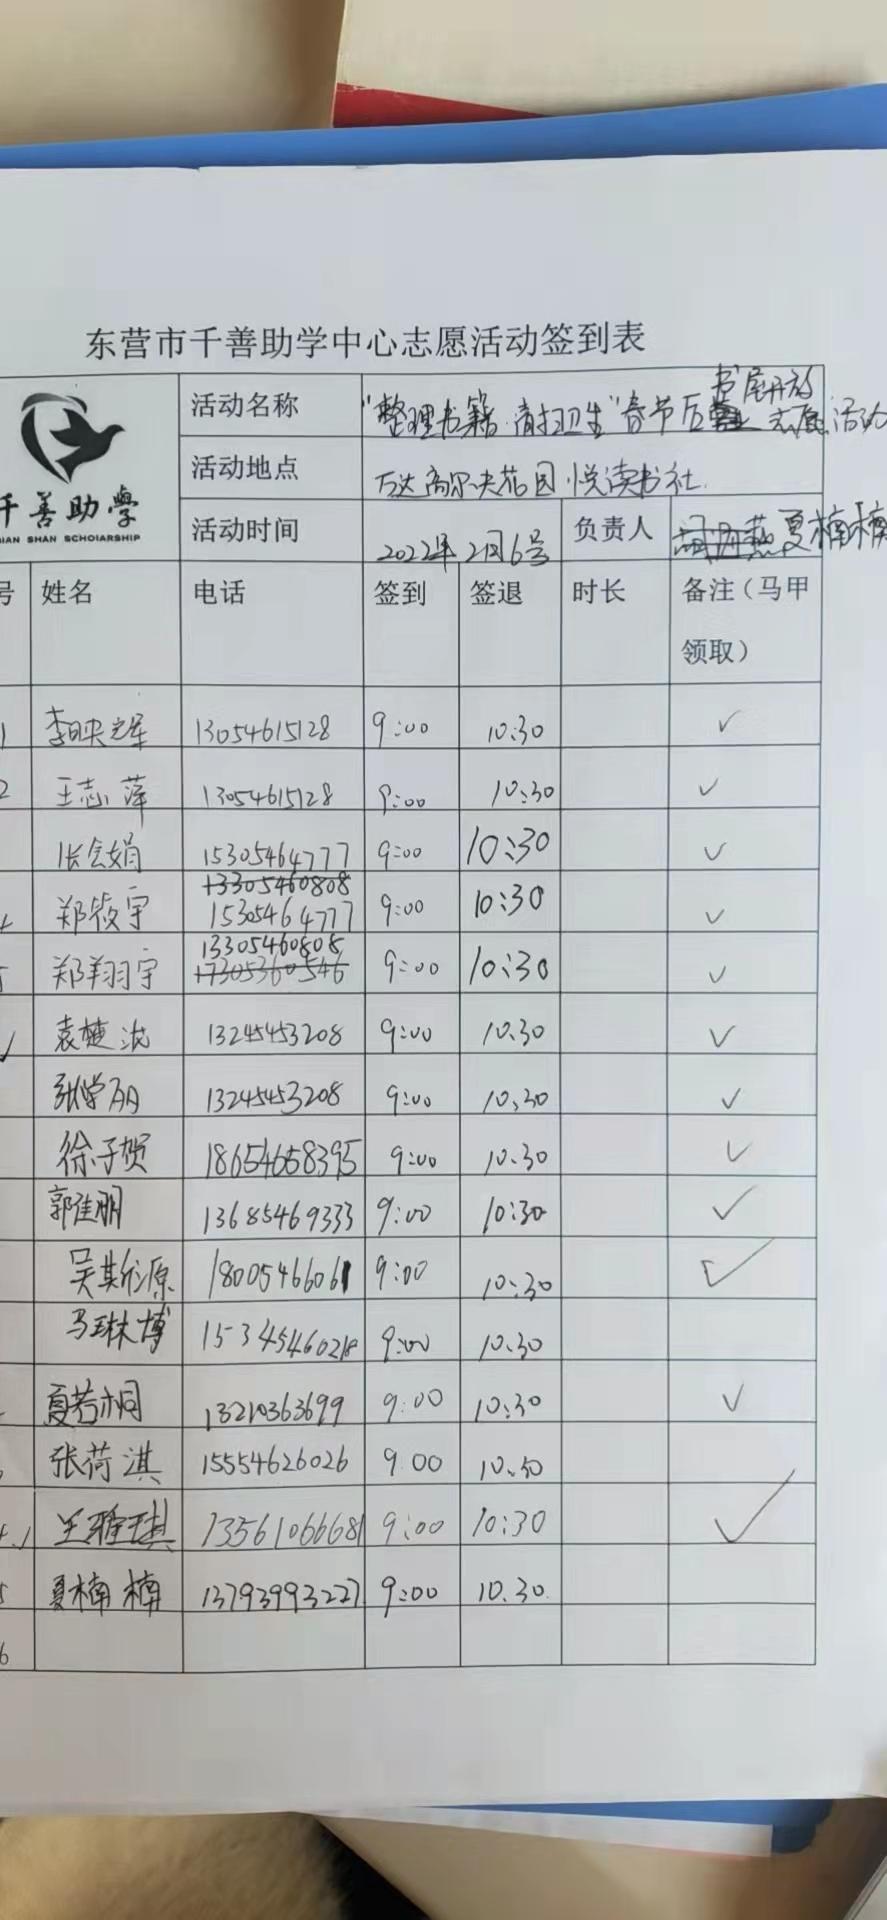 东营市千善助学中心志愿活动签到表
千善助學
QIAN SHAN SCHOIARSHIP
活动名称 "整理书籍 清扫卫生"春节后书屋开放志愿活动
活动地点 万达高尔夫花园 悦读书社
活动时间 2022年2月6号 负责人 夏楠楠
号 姓名 电话 签到 签退 时长 备注（马甲
领取）
1 李映辉 13054615128 9:00 10:30 ✓
2 王志萍 13054615128 9:00 10:30 ✓
张会娟 15305464777 9:00 10:30 ✓
13305460808
4 郑筱宇 15305464777 9:00 10:30 ✓
13305460808
5 郑翔宇 17305360546 9:00 10:30 ✓
袁楚 13245453208 9:00 10.30 ✓
张学丽 13245453208 9:00 10.30 ✓
徐子贺 18654658395 9:00 10.30 ✓
郭佳明 13685469333 9:00 10:30 ✓
吴斯源 18005466061 9:00 10:30 ✓
马琳博 15345460218 9:00 10.30
夏若桐 13210363699 9:00 10.30 ✓
张荷淇 15554626026 9.00 10.30
王雅琪 13561066681 9:00 10:30 ✓
5 夏楠楠 13793993227 9:00 10.30
6